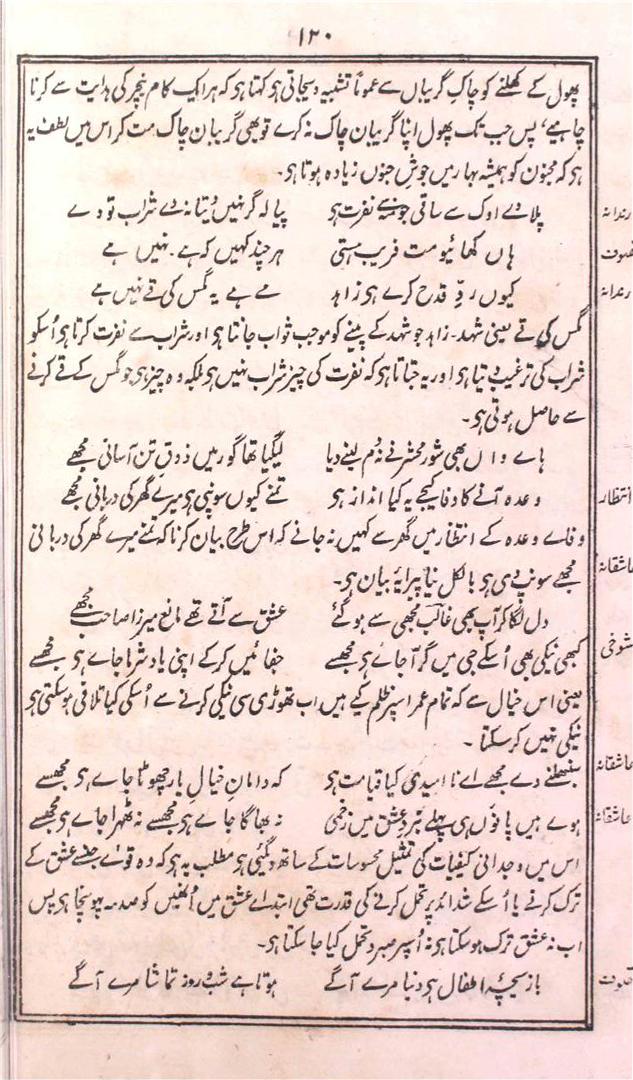 ۱۲۰
پھول کے کھلنے کو چاکِ گریباں سے عموماً تشبیہ دیجاتی ہو کہتا ہو کہ ہر ایک کام نیچر کی ہدایت سے کرنا
چاہیے، پس جب تک پھول اپنا گریبان چاک نہ کرے تو بھی گریبان چاک مت کر اس میں لطف یہ
ہو کہ مجنون کو ہمیشہ بہار میں جوشِ جنوں زیادہ ہوتا ہو۔
رندانہ
پلا دے اوک سے ساقی جو ہمسے نفرت ہو پیالہ گر نہیں دیتا نہ دے شراب تو دے
تصوف
ہاں کھائیو مت فریب ہستی ہر چند کہیں کہ ہے۔ نہیں ہے
رندانہ
کیوں ردِّ قدح کرے ہو زاہد مے ہے یہ مگس کی قے نہیں ہے
مگس کی قے یعنی شہد۔ زاہد جو شہد کے پینے کو موجب ثواب جانتا ہو اور شراب سے نفرت کرتا ہو اُسکو
شراب کی ترغیب دیتا ہو اور یہ جتاتا ہو کہ نفرت کی چیز شراب نہیں ہو بلکہ وہ چیز ہو جو مگس کے قے کرنے
سے حاصل ہوتی ہو۔
ہاے واں بھی شورِ محشر نے نہ دم لینے دیا لیگیا تھا گور میں ذوقِ تن آسانی مجھے
انتظار
وعدہ آنے کا وفا کیجے یہ کیا انداز ہو تمنے کیوں سونپی ہو میرے گھر کی دربانی مجھے
وفاے وعدہ کے انتظار میں گھر سے کہیں نہ جانے کو اس طرح بیان کرنا کہ تمنے میرے گھر کی دربانی
عاشقانہ
مجھے سونپ دی ہو بالکل نیا پیرایۂ بیان ہو۔
دل لگا کر آپ بھی غالبؔ مجھی سے ہو گئے عشق سے آتے تھے مانع میرزا صاحب مجھے
شوخی
کبھی نیکی بھی اُسکے جی میں گر آ جاے ہو مجھسے جفائیں کرکے اپنی یاد شرما جاے ہو مجھسے
یعنی اس خیال سے کہ تمام عمر اسپر ظلم کیے ہیں اب تھوڑی سی نیکی کرنے سے اُسکی کیا تلافی ہو سکتی ہو
نیکی نہیں کر سکتا۔
عاشقانہ
سنبھلنے دے مجھے اے نا امیدی کیا قیامت ہو کہ دامانِ خیالِ یار چھوٹا جاے ہو مجھسے
عاشقانہ
ہوے ہیں پاؤں ہی پہلے نبردِ عشق میں زخمی نہ بھاگا جاے ہو مجھسے نہ ٹھہرا جاے ہو مجھسے
اس میں وجدانی کیفیات کی تمثیل محسوسات کے ساتھ دیگئی ہو مطلب یہ ہو کہ وہ قوٰے جنسے عشق کے
ترک کرنے یا اُسکے شدائد پر تحمل کرنے کی قدرت تھی ابتداے عشق میں اُنھیں کو صدمہ پہونچا ہو پس
اب نہ عشق ترک ہو سکتا ہو نہ اُسپر صبر و تحمل کیا جا سکتا ہو۔
بازیچۂ اطفال ہو دنیا مرے آگے ہوتا ہے شب و روز تماشا مرے آگے